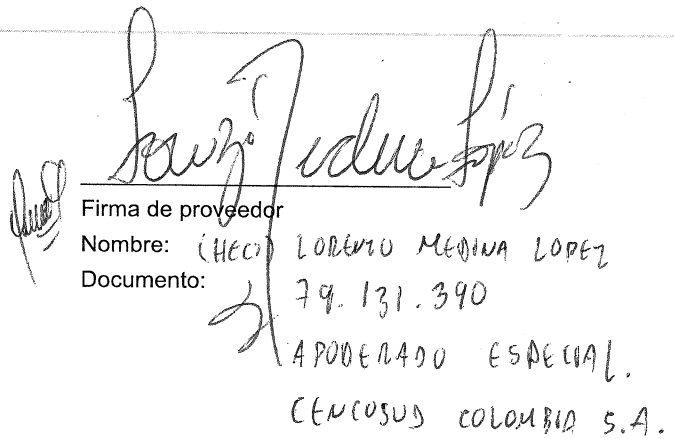 Lorenzo Medina López
Firma de proveedor
Nombre: (HEC) LORENZO MEDINA LOPEZ
Documento: 79.131.390
APODERADO ESPECIAL.
CENCOSUD COLOMBIA S.A.